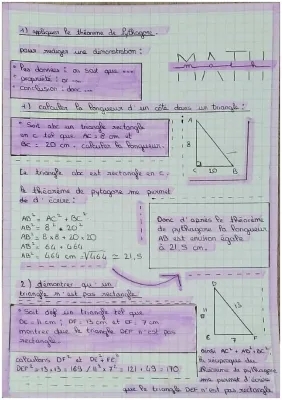 1) appliquer le théorème de Pythagore.
MATH
math
pour rédiger une démonstration :
• Les données : on sait que ...
• propriété : or ...
• conclusion : donc ...
1) calculer la longueur d'un côté dans un triangle :
• Soit abc un triangle rectangle
en c tel que AC = 8 cm et
BC = 20 cm. calculer la longueur.
A
8
C 20 B
Le triangle abc est rectangle en c.
le théorème de pytagore me permet
d'écrire :
AB² = AC² + BC²
AB² = 8² + 20²
AB² = 8 x 8 + 20 x 20
AB² = 64 + 464
AB² = 464 cm = √464 ≃ 21,5
Donc d'après le théorème
de pythagore la longueur
AB est environ égale
à 21,5 cm.
2) démontrer qu'un
triangle n'est pas rectangle
• Soit def un triangle tel que
DE = 11 cm ; DF = 13 cm et EF = 7 cm
montrer que le triangle DEF n'est pas
rectangle.
D
11 13
E 7 F
calculons DF² et DE² + FE²
DEF² = 13 x 13 = 169 / 11² + 7² = 121 + 49 = 170
AC² + AB² = BC²
la réciproque du
théorème de pythagore
me permet d'écrire
que le triangle DEF n'est pas rectangle